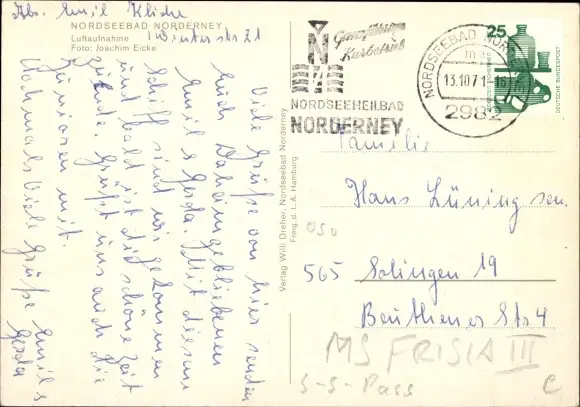 Abs. Emil Kliche
Winterstr 21
NORDSEEBAD NORDERNEY
Luftaufnahme
Foto: Joachim Eicke
Viele Grüße von hier senden
Euch Daheimgebliebenen
Emil & Gerda. Mit diesem
Schiff sind wir gekommen
und bald ist die schöne Zeit
zu Ende. Grüßt uns auch die
Junioren mit.
Nochmals viele Grüße Emil &
Gerda
Verlag Willi Dreher, Nordseebad Norderney
Freig. d. L.A. Hamburg
N
Ganzjähriger
Kurbetrieb
NORDSEEHEILBAD
NORDERNEY
NORDSEEBAD NORD
13.10.71-16
2982
25
DEUTSCHE BUNDESPOST
Familie
Hans Lüning sen.
565 Solingen 19
Beuthener Str 4
MS FRISIA III
S-S-Pass
C